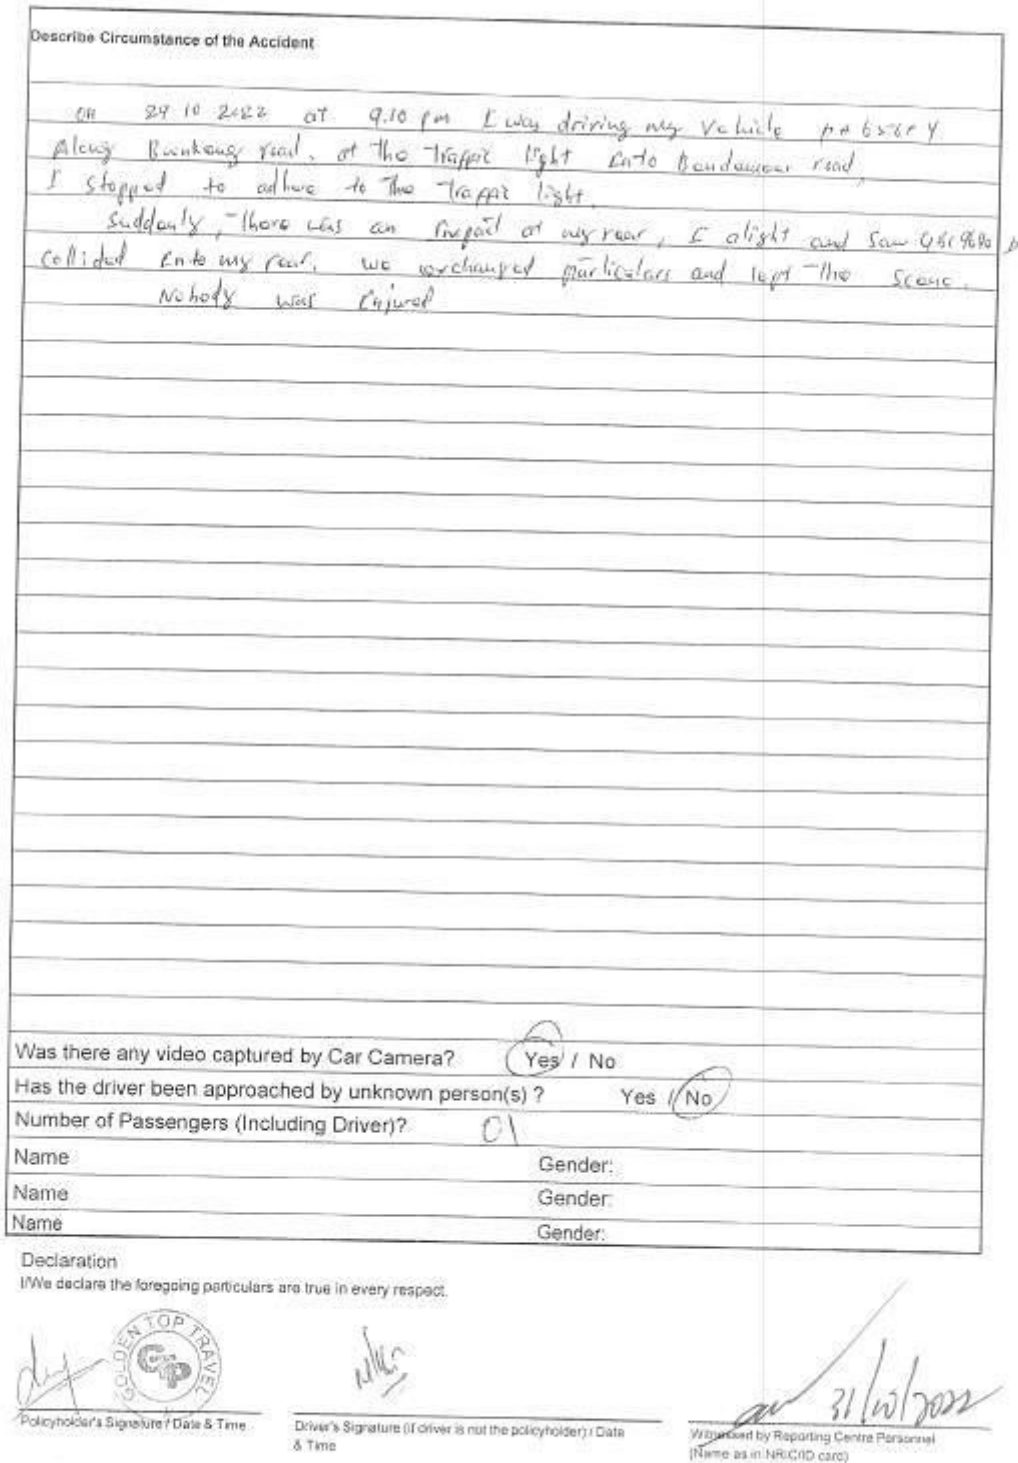 Describe Circumstance of the Accident
on 29 10 2022 at 9.10 pm I was driving my vehicle
Along road, at the Traffic light Into road,
I stopped to adhere to the Traffic light.
Suddenly, There was an Impact at my rear, I alight and saw
collided Into my rear. we exchanged particulars and left The scene.
Nobody was Injured
Was there any video captured by Car Camera? Yes / No
Has the driver been approached by unknown person(s) ? Yes / No
Number of Passengers (Including Driver)? 01
Name Gender:
Name Gender:
Name Gender:
Declaration
I/We declare the foregoing particulars are true in every respect.
GOLDEN TOP TRAVEL
31/10/2022
Policyholder's Signature / Date & Time
Driver's Signature (if driver is not the policyholder) / Date
& Time
Witnessed by Reporting Centre Personnel
(Name as in NRIC/ID card)